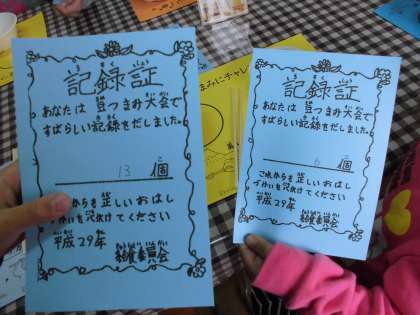 記録証
あなたは豆つまみ大会で
すばらしい記録をだしました。
13個
これからも正しいおはし
づかいを心がけてください
平成29年
給食委員会
記録証
あなたは豆つまみ大会で
すばらしい記録をだしました。
6個
これからも正しいおはし
づかいを心がけてください
平成29年
給食委員会